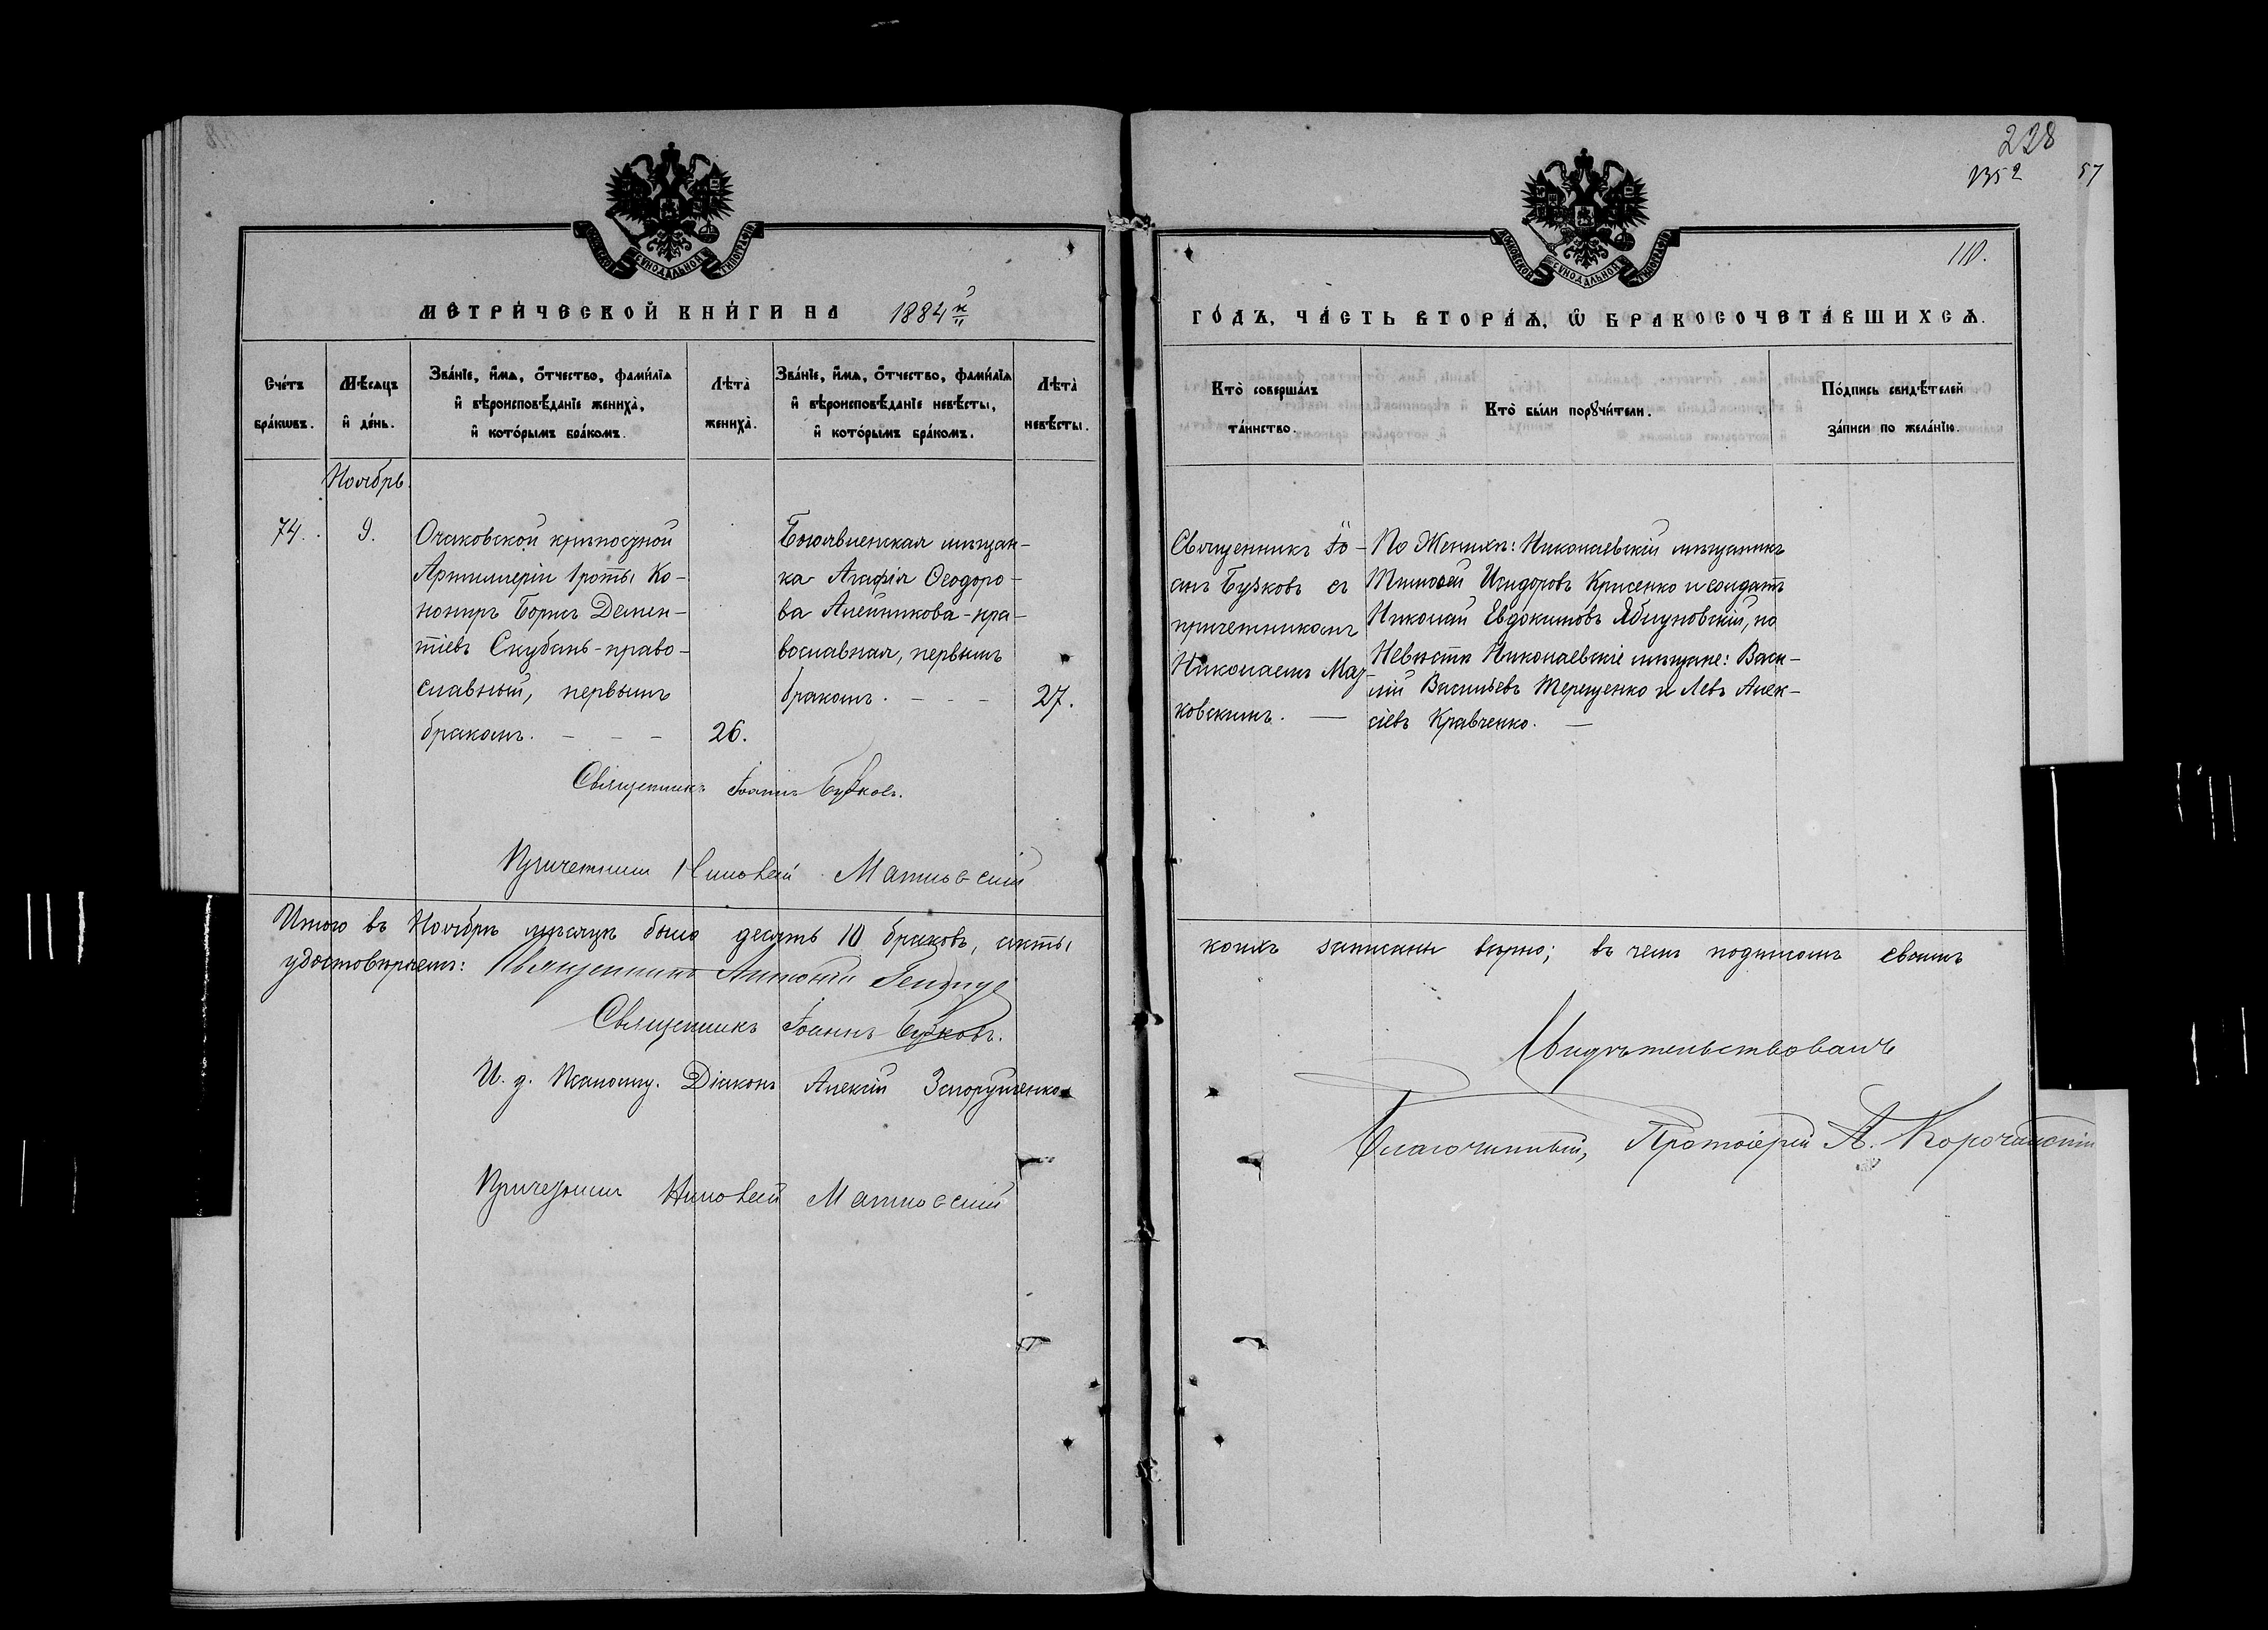 МЕТРИ́ЧЕСКОЙ КНИ́ГИ НА 1884й
Сче́тъ бра́кѡвъ.
Мѣ́сяцъ и҆ де́нь.
Зва́нїе, и҆́мѧ, ѻ҆́тчество, фами́лїѧ и҆ вѣроисповѣ́данїе жениха̀, и҆ кото́рымъ бра́комъ.
Лѣта̀ жениха̀.
Зва́нїе, и҆́мѧ, ѻ҆́тчество, фами́лїѧ и҆ вѣроисповѣ́данїе невѣ́сты, и҆ кото́рымъ бра́комъ.
Лѣта̀ невѣ́сты.
Ноябрь.
74.
9.
Очаковской крѣпостной
Артиллеріи 1 роты Ко-
нониръ Борисъ Демен-
тіевъ Скубань - право-
славный, первымъ
бракомъ. - - -
26.
Богоявленская мѣщан-
ка Агафія Ѳеодоро-
ва Алейникова - пра-
вославная, первымъ
бракомъ. - - -
27.
Священникъ Іоаннъ Бужковъ.
Причетникъ Матковскій
Итого въ Ноябрѣ мѣсяцѣ было десять 10 браковъ, акты
удостовѣряемъ: Священникъ Антоній
Священникъ Іоаннъ Бужковъ.
И. д. Псаломщ. Діаконъ Алексій
Причетникъ Матковскій
228
1352
57
110.
МОСКОВСКОЙ СѴНОДАЛЬНОЙ ТИПОГРАФІИ
ГО́ДЪ, ЧА́СТЬ ВТОРА́Ѧ, Ѡ҆ БРАКОСОЧЕТА́ВШИХСѦ.
Кто̀ соверша́лъ та́инство.
Кто̀ бы́ли порꙋчи́тели.
По́дпись свидѣ́телей за́писи по жела́нїю.
Священникъ Іо-
анъ Бужковъ съ
причетникомъ
Николаемъ Мат-
ковскимъ. —
По Женихѣ: Николаевскій мѣщанинъ
Тимоѳей Исидоровъ Крисенко и солдатъ
Николай Евдокимовъ Яблуновскій, по
Невѣстѣ Николаевскіе мѣщане: Васи-
лій Васильевъ Терещенко и Левъ Алек-
сіевъ Кравченко. —
коихъ записаны вѣрно; въ чемъ подписомъ своимъ
Свидѣтельствовалъ
Благочинный, Протоіерей А. Корочанскій